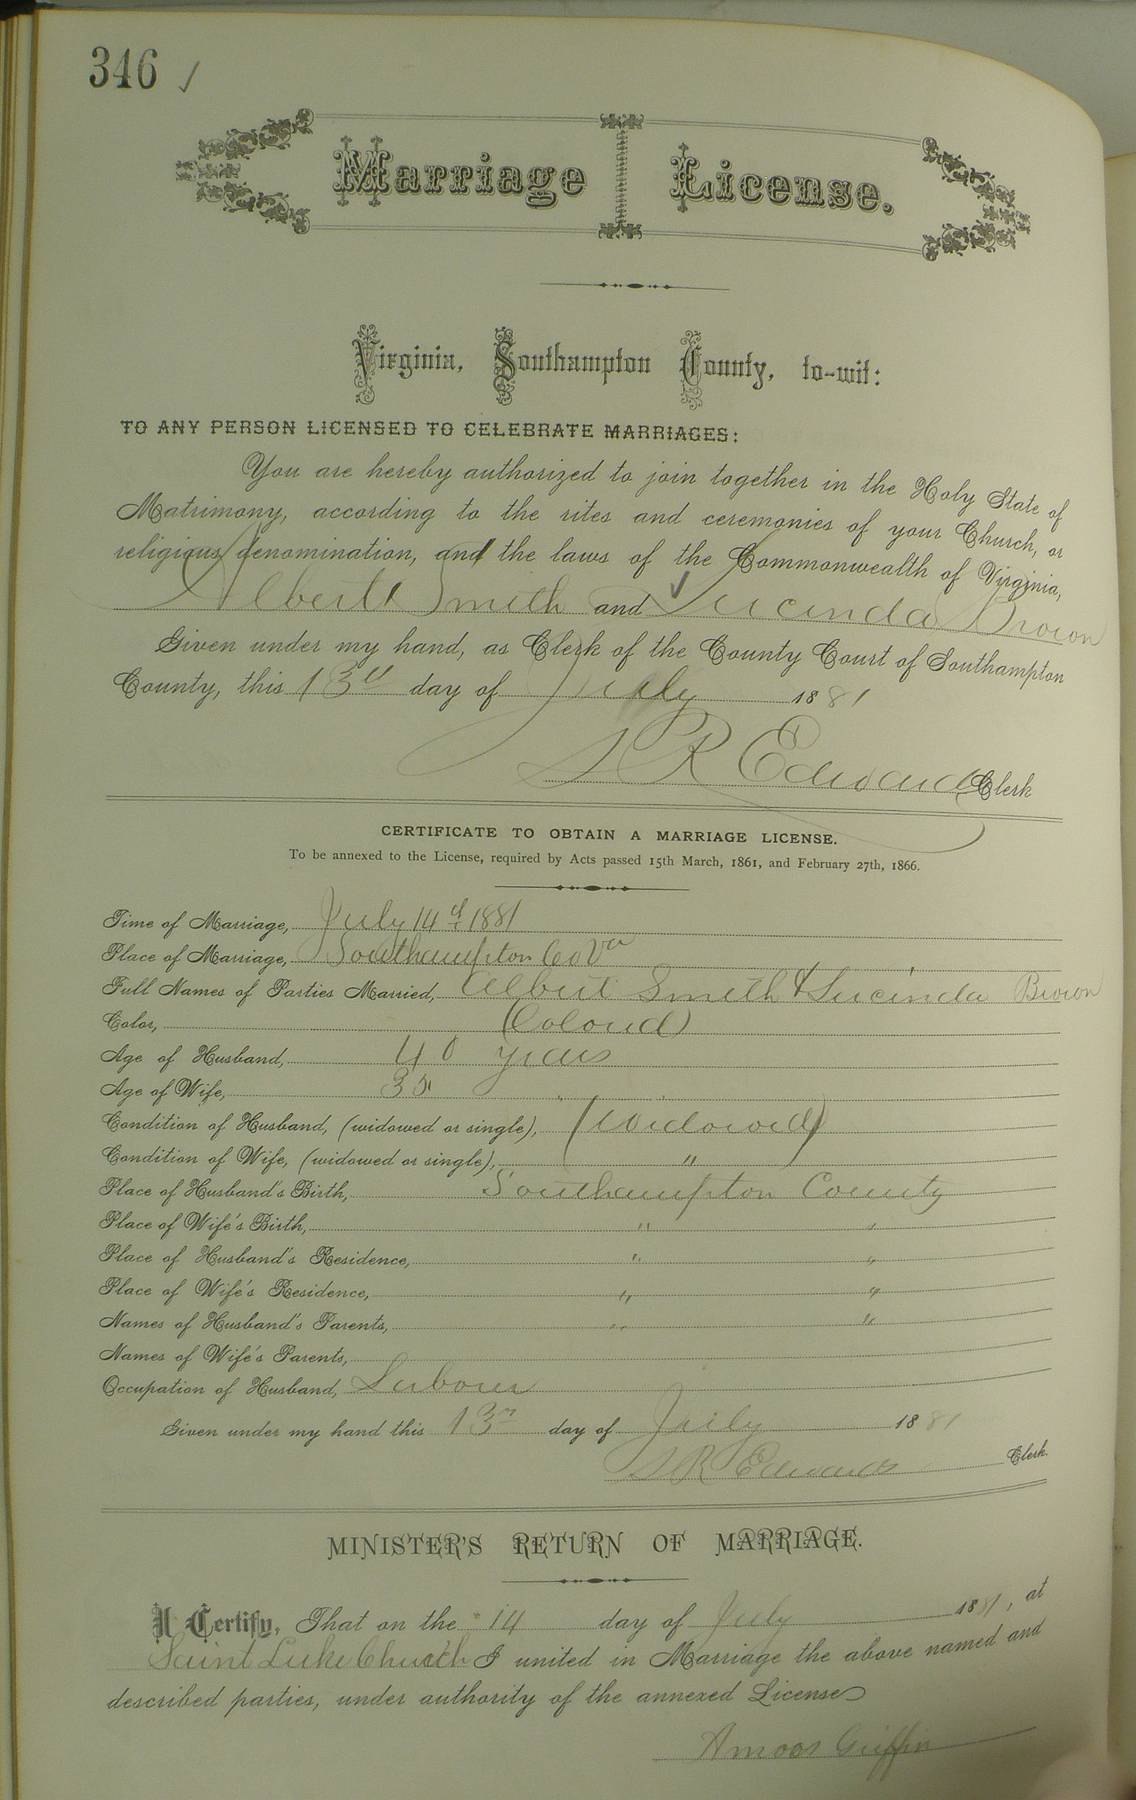 346 ✓
Marriage License.
Virginia, Southampton County, to-wit:
TO ANY PERSON LICENSED TO CELEBRATE MARRIAGES:
You are hereby authorized to join together in the Holy State of
Matrimony, according to the rites and ceremonies of your Church, or
religious denomination, and the laws of the Commonwealth of Virginia,
Albert Smith and ✓ Lucinda Brown
Given under my hand, as Clerk of the County Court of Southampton
County, this 13th day of July 1881
L R Edwards Clerk
CERTIFICATE TO OBTAIN A MARRIAGE LICENSE.
To be annexed to the License, required by Acts passed 15th March, 1861, and February 27th, 1866.
Time of Marriage, July 14th 1881
Place of Marriage, Southampton Co Va
Full Names of Parties Married, Albert Smith & Lucinda Brown
Color, (Colored)
Age of Husband, 40 years
Age of Wife, 35 "
Condition of Husband, (widowed or single), (Widowed)
Condition of Wife, (widowed or single), "
Place of Husband's Birth, Southampton County
Place of Wife's Birth, " "
Place of Husband's Residence, " "
Place of Wife's Residence, " "
Names of Husband's Parents, " "
Names of Wife's Parents,
Occupation of Husband, Laborer
Given under my hand this 13th day of July 1881
L R Edwards Clerk.
MINISTER'S RETURN OF MARRIAGE.
I Certify, That on the 14 day of July 1881, at
Saint Luke Church I united in Marriage the above named and
described parties, under authority of the annexed License
Amoos Griffin